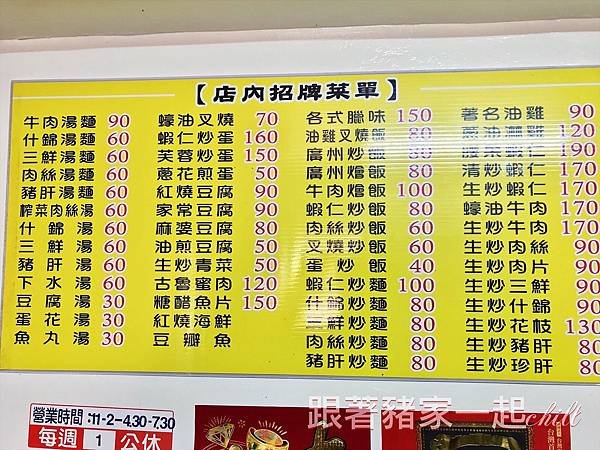 【店內招牌菜單】
牛肉湯麵 90
什錦湯麵 60
三鮮湯麵 60
肉絲湯麵 60
豬肝湯麵 60
榨菜肉絲湯 60
什錦湯 60
三鮮湯 60
豬肝湯 60
下水湯 60
豆腐湯 30
蛋花湯 30
魚丸湯 30
蠔油叉燒 70
蝦仁炒蛋 160
芙蓉炒蛋 150
蔥花煎蛋 50
紅燒豆腐 90
家常豆腐 90
麻婆豆腐 80
油煎豆腐 50
生炒青菜 50
古魯蜜肉 120
糖醋魚片 150
紅燒海鮮
豆瓣魚
各式臘味 150
油雞叉燒飯 80
廣州炒飯 80
廣州燴飯 80
牛肉燴飯 100
蝦仁炒飯 80
肉絲炒飯 60
叉燒炒飯 60
蛋炒飯 40
蝦仁炒麵 100
什錦炒麵 80
三鮮炒麵 80
肉絲炒麵 80
豬肝炒麵 80
著名油雞 90
蔥油淋雞 120
腰果蝦仁 190
清炒蝦仁 170
生炒蝦仁 170
蠔油牛肉 170
生炒牛肉 170
生炒肉絲 90
生炒肉片 90
生炒三鮮 90
生炒什錦 90
生炒花枝 130
生炒豬肝 80
生炒珍肝 80
營業時間:11-2-4.30-7.30
每週 1 公休
跟著豬家一起chill